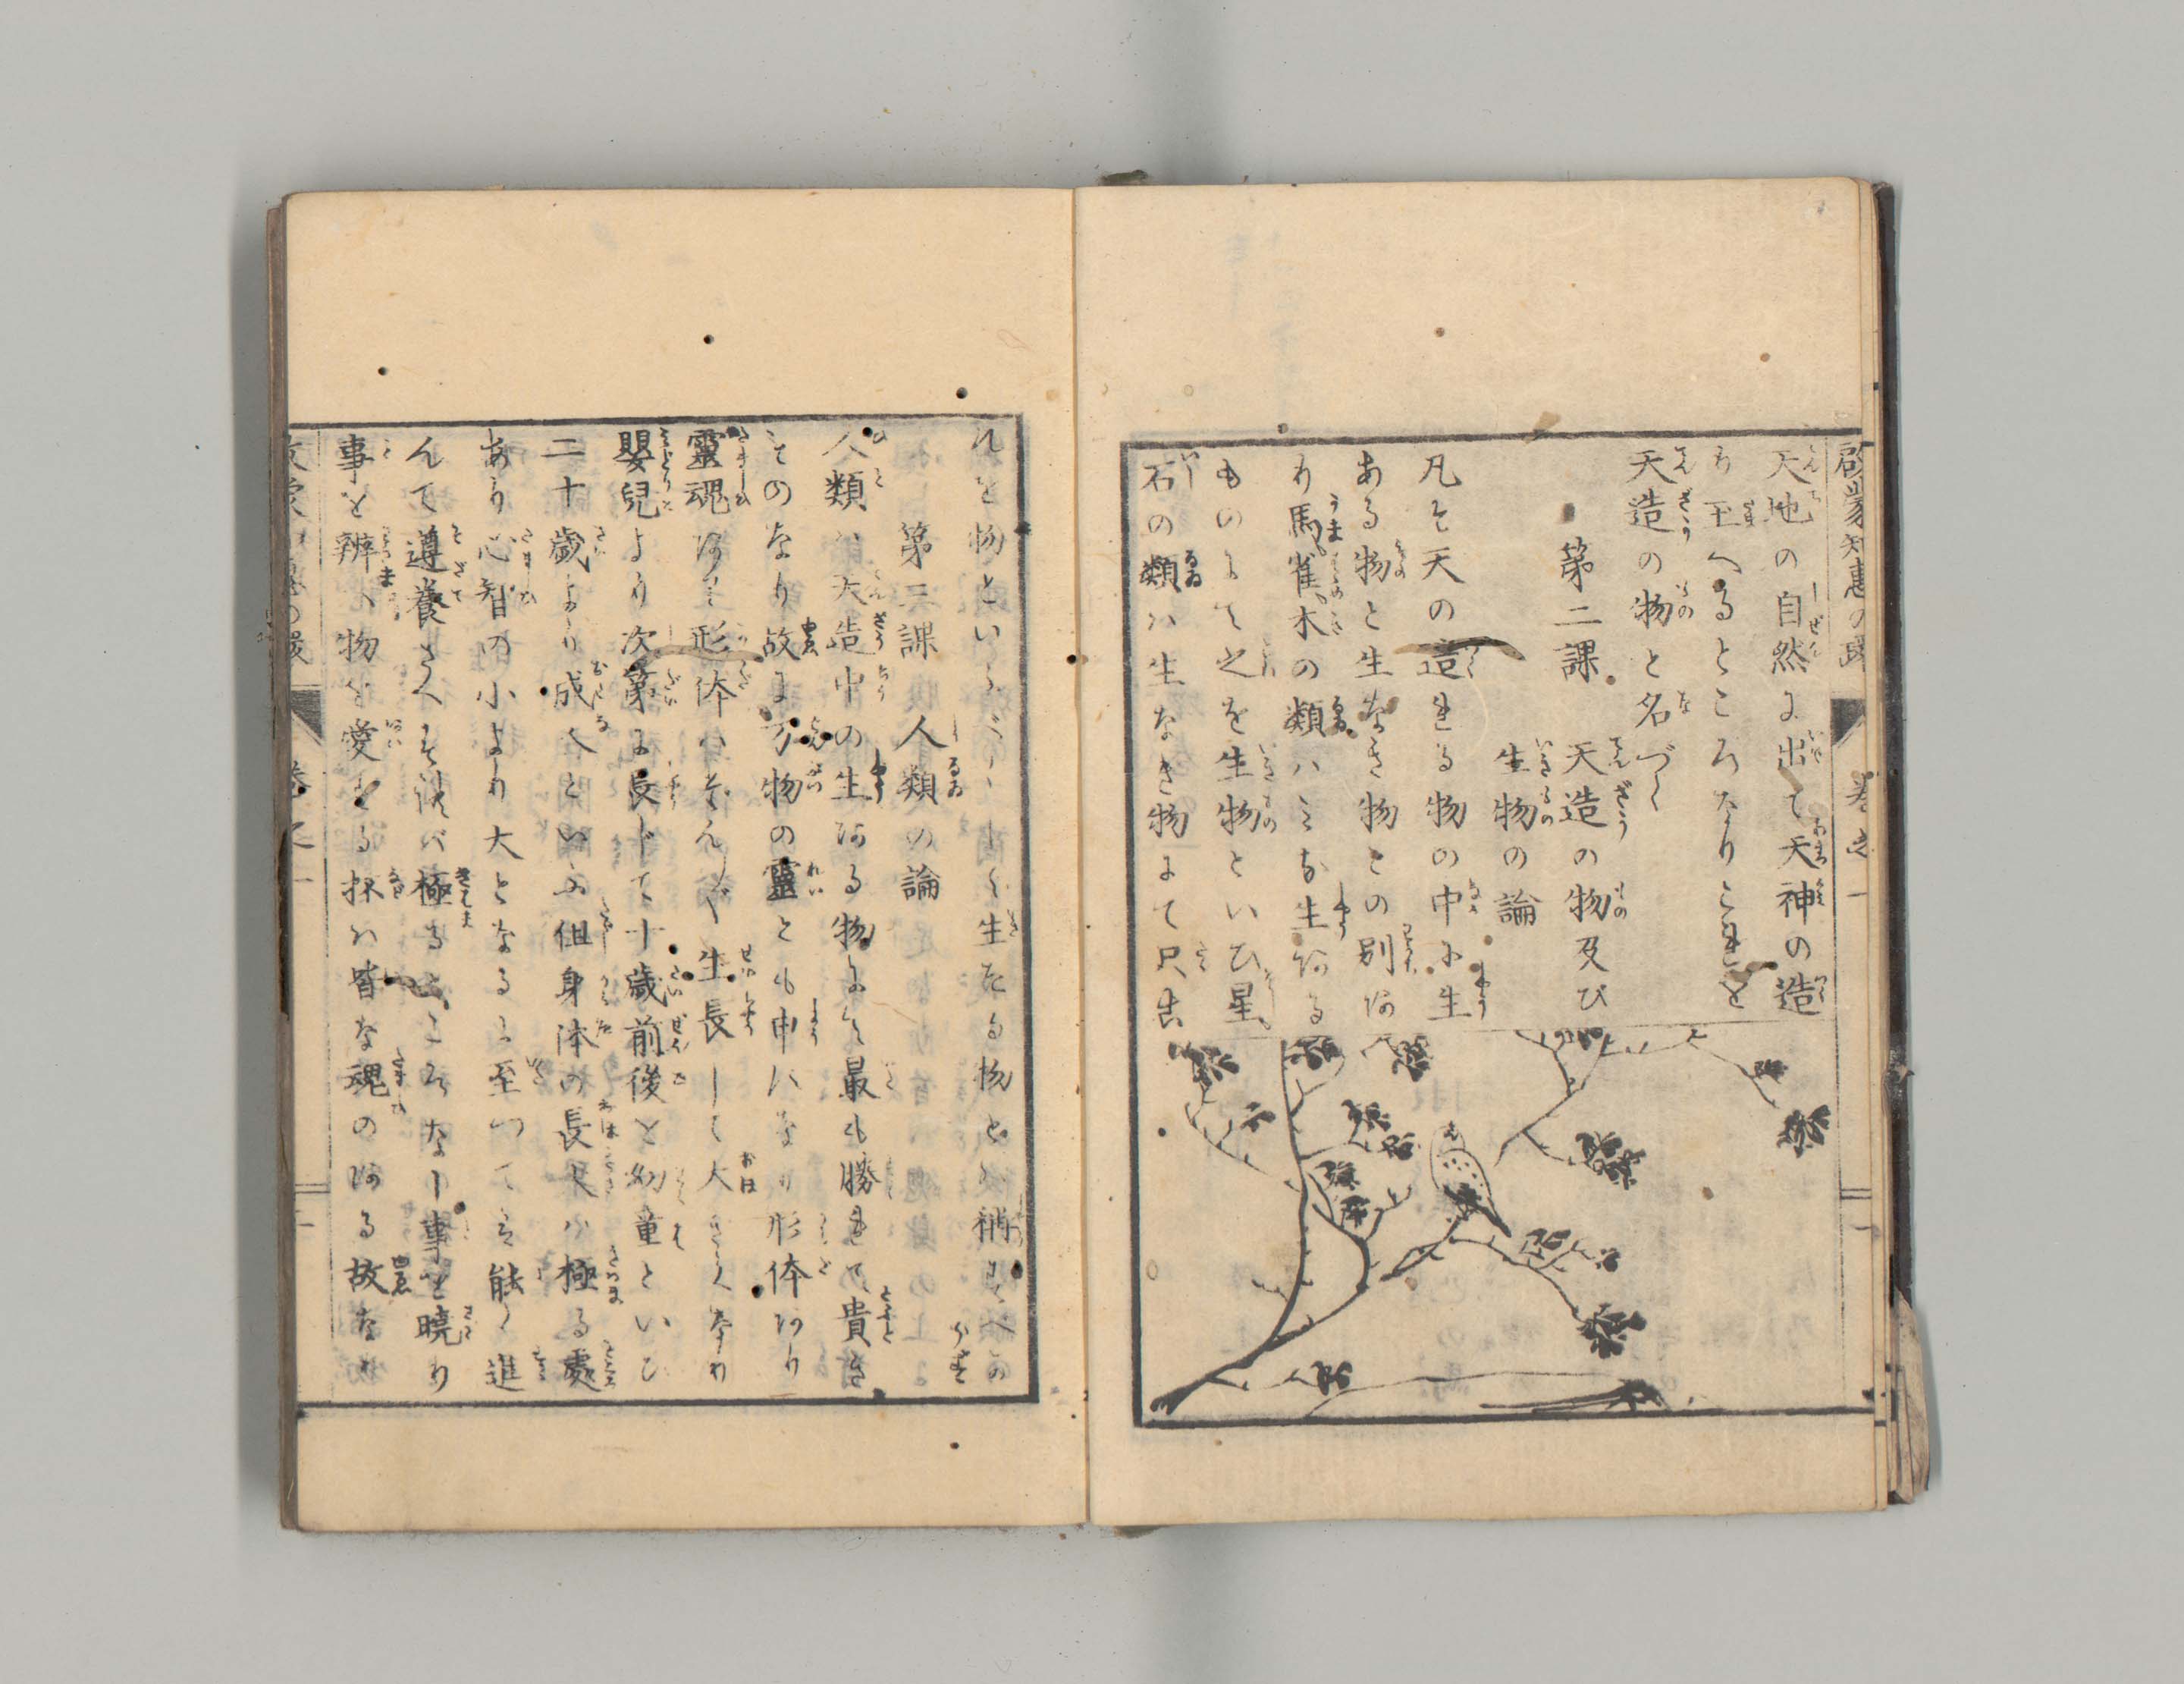 啓蒙知恵の環 巻之一
天地の自然に出て天神の造
り玉へるところなりこれを
天造の物と名づく
第二課 天造の物及び
生物の論
凡そ天の造れる物の中に生
ある物と生なき物との別あ
り馬雀木の類ハミな生ある
ものにて之を生物といひ星
石の類ハ生なき物にて只
れを物といふ 生たる物
第三課 人類の論
人類ハ天造中の生ある物にて最も勝れて貴き
ものなり故に万物の靈とも申すなり形体あり
靈魂あり形体ハ 生長して大きくなり
嬰兒より次第に長じて十歳前後を幼童といひ
二十歳より成人といふ但身体の長大ハ極る處
あり心智の小より大となるに至つてハ能く進
んで遵養さへすれバ極るところなし事を曉り
事を辨へ物を愛する抔ハ皆な魂のある故なり